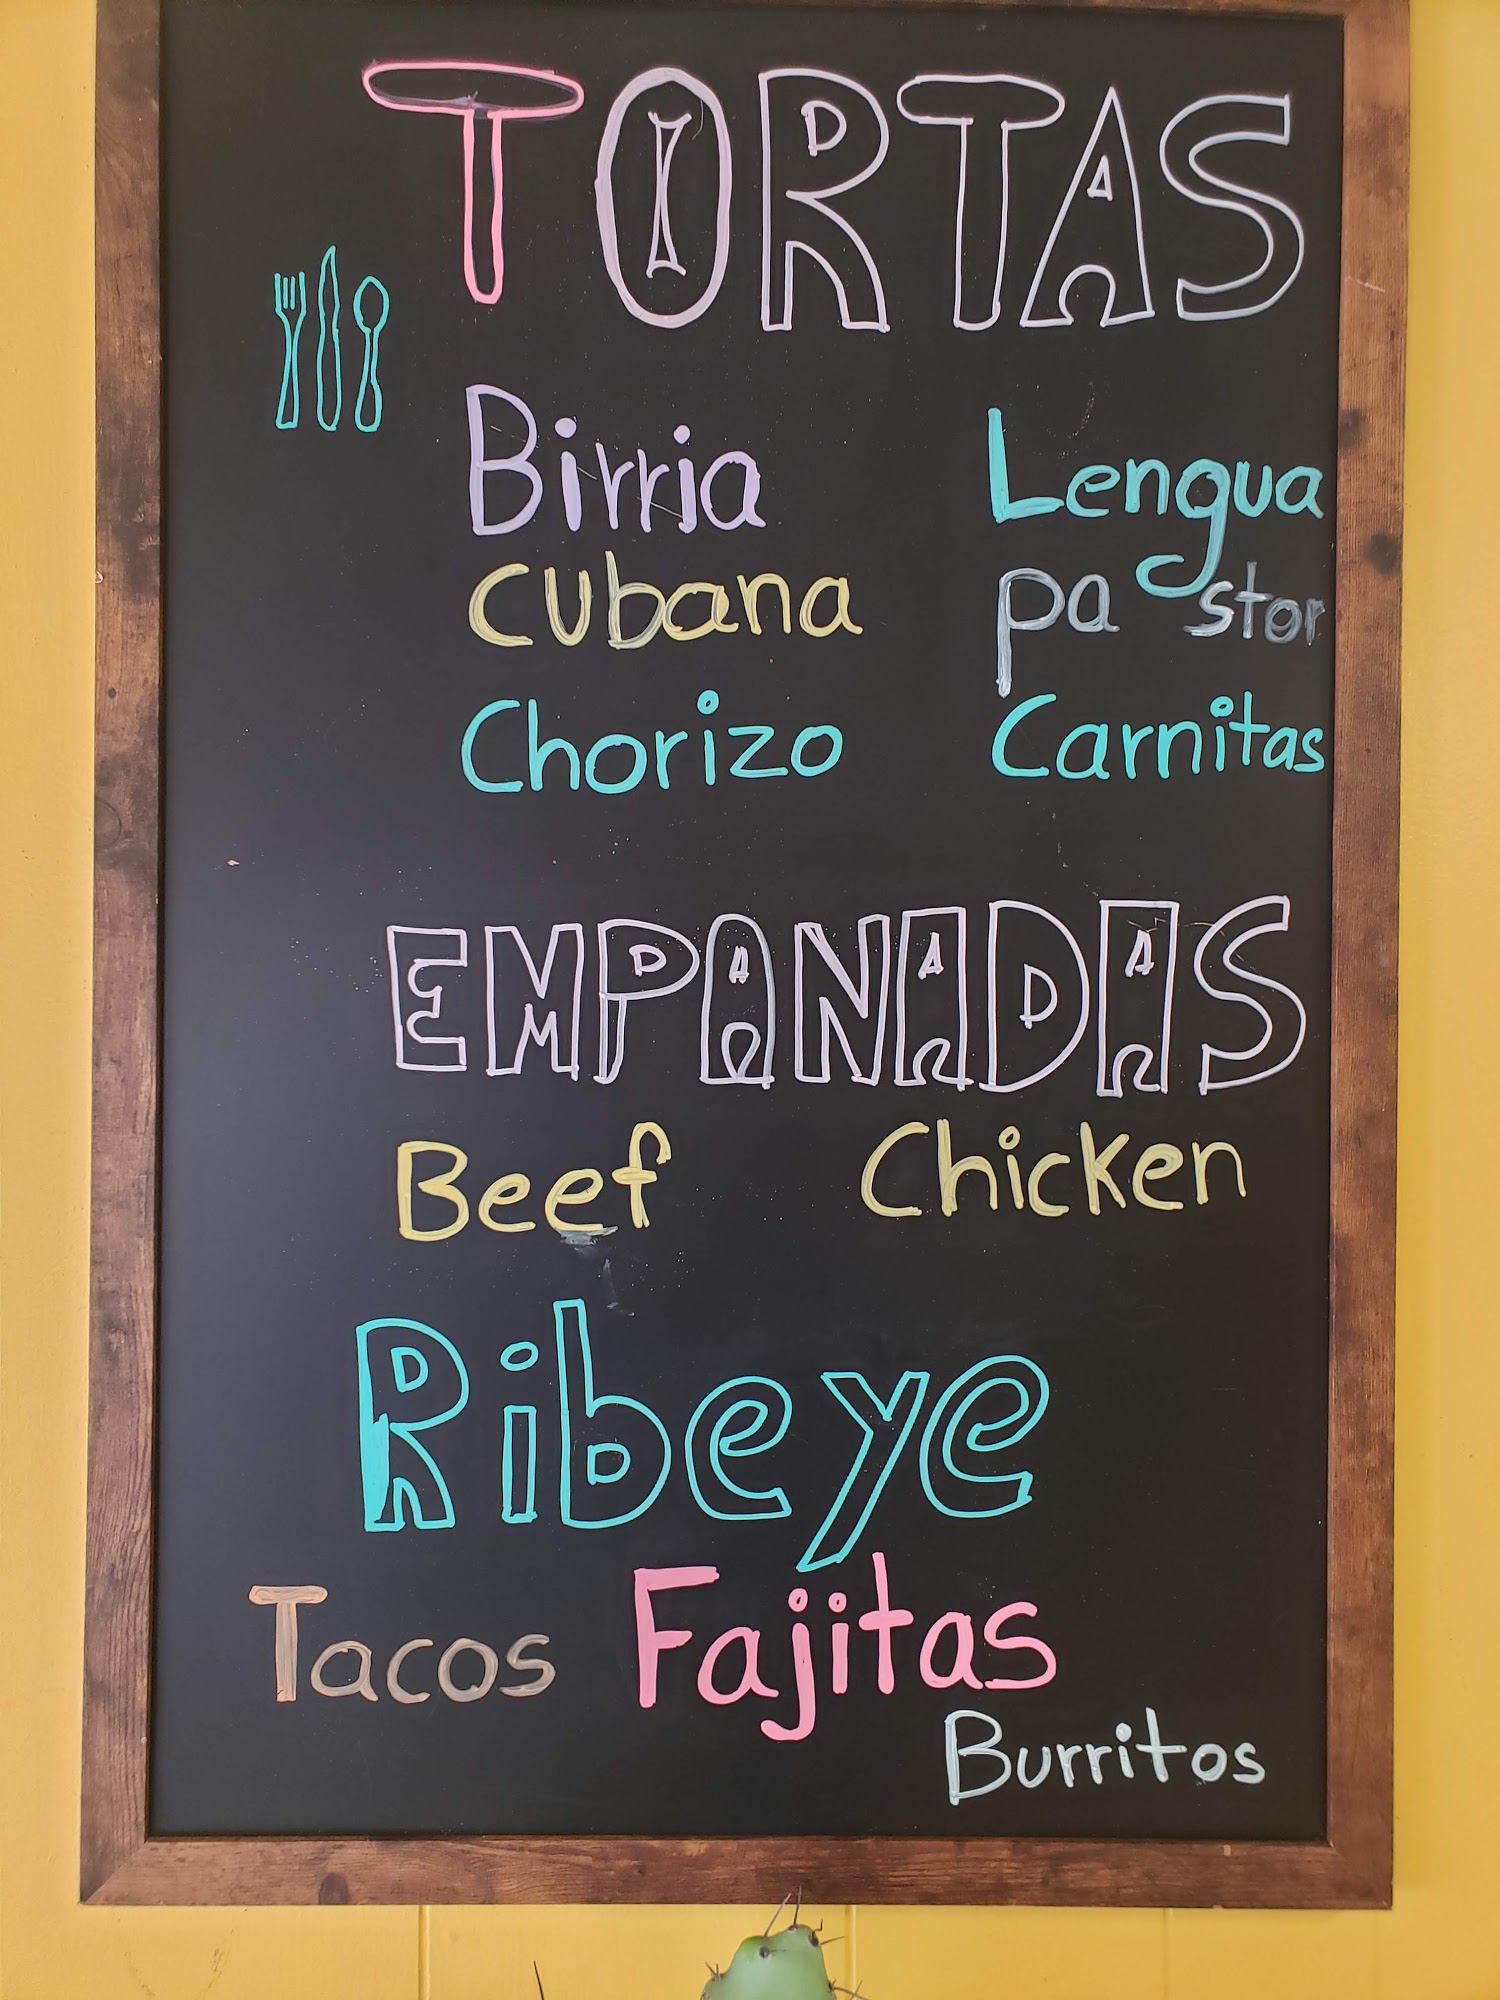 TORTAS
Birria Lengua
Cubana pastor
Chorizo Carnitas
EMPANADAS
Beef Chicken
Ribeye
Tacos Fajitas
Burritos